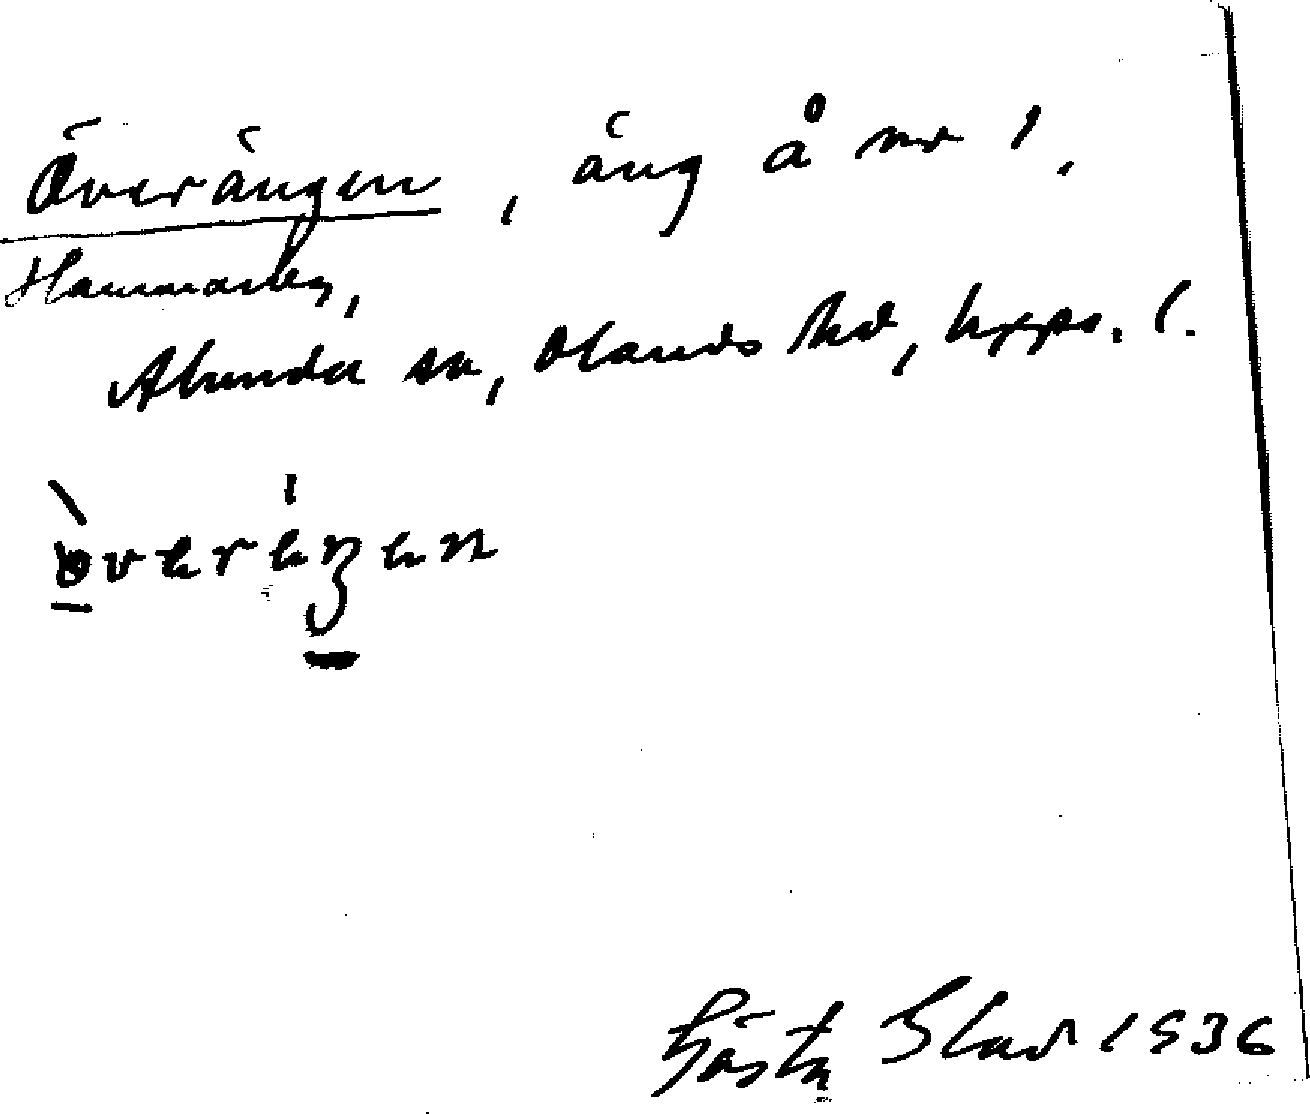 Överängen, äng å nr 1,
Hammarby,
Alunda sn, Olands hd, Upps. l.
övereŋen
Gösta Blad 1936